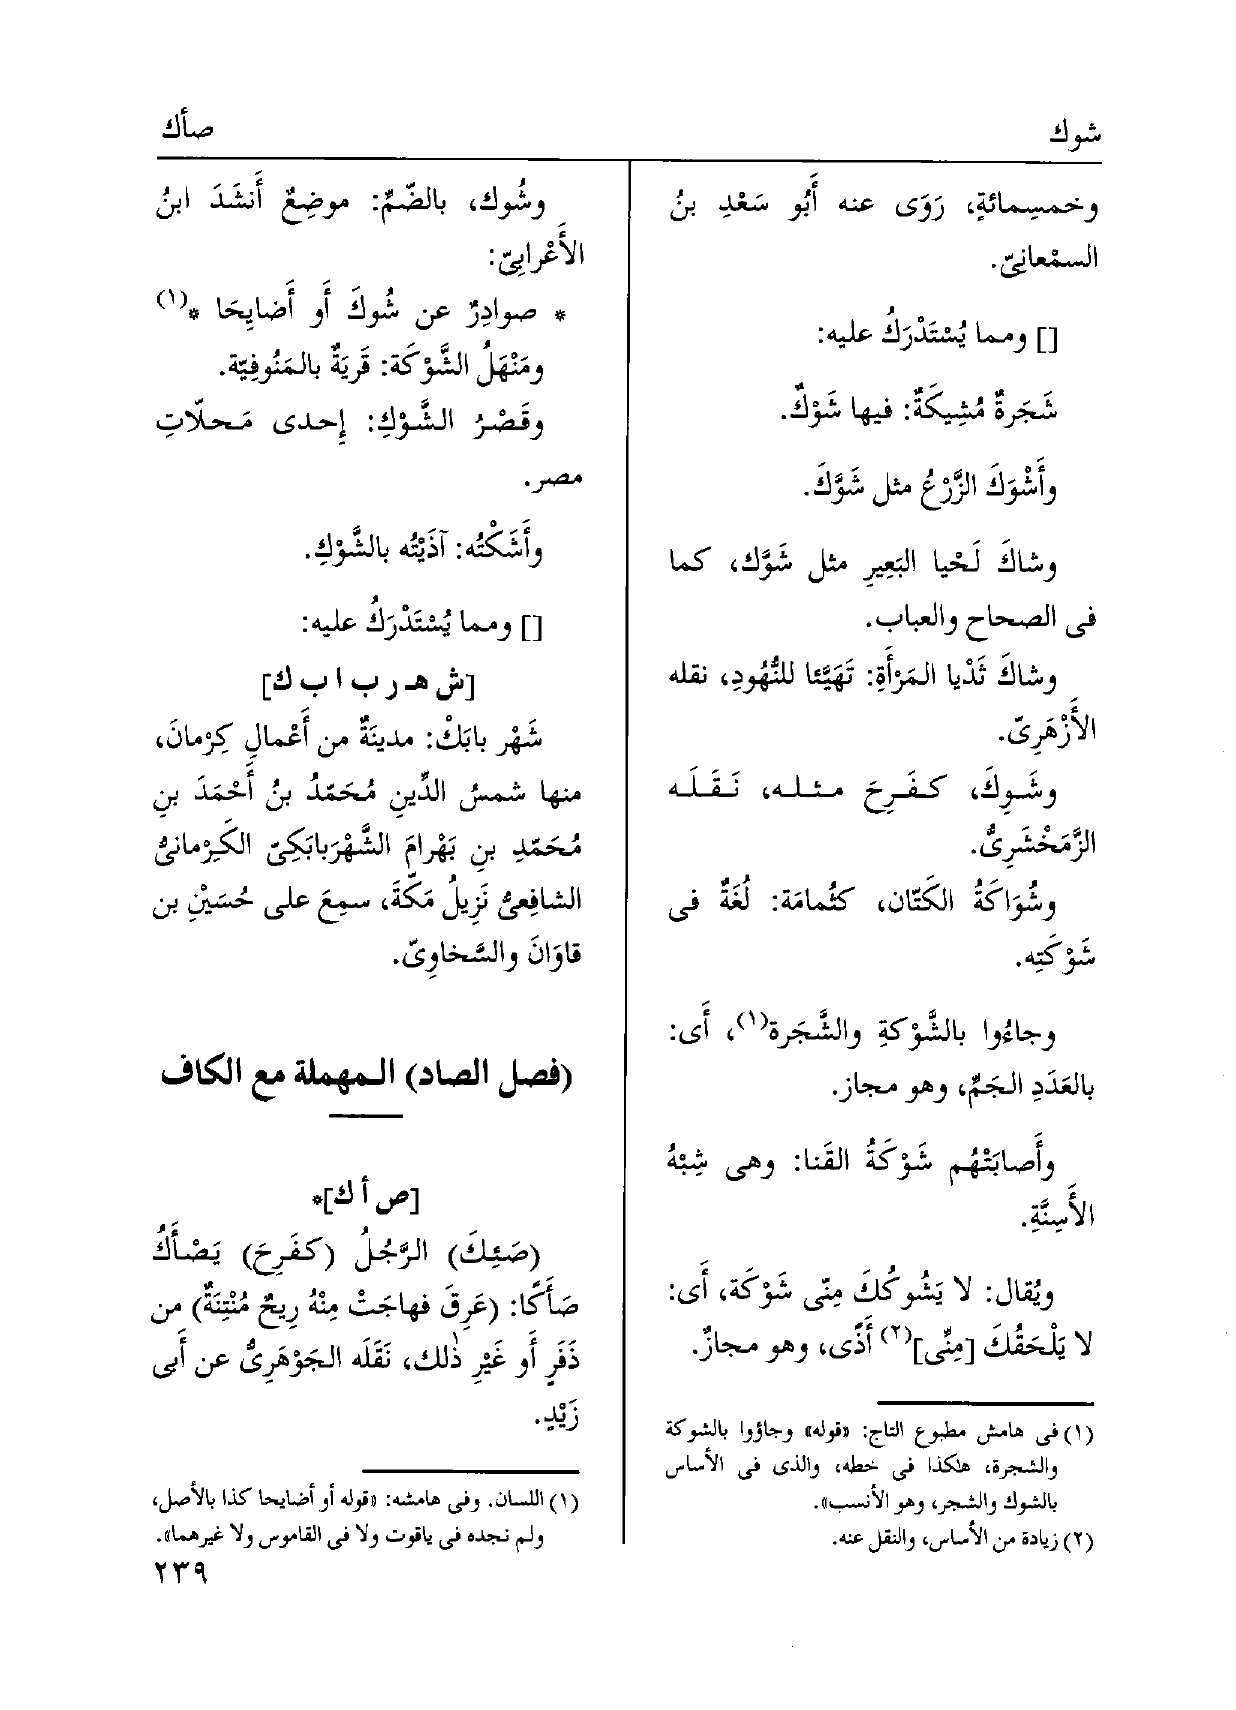 شوك
صأك
وخمسِمائةٍ، رَوَى عنه أَبُو سَعْدِ بنُ
السمْعانىّ.
[] ومما يُسْتَدْرَكُ عليه:
شَجَرةٌ مُشِيكَةٌ: فيها شَوْكٌ.
وأَشْوَكَ الزَّرْعُ مثل شَوَّكَ.
وشاكَ لَحْيا البَعِيرِ مثل شَوَّك، كما
فى الصحاح والعباب.
وشاكَ ثَدْيا المَرْأَةِ: تَهَيَّئا للنُّهُودِ، نقله
الأَزْهَرِىّ.
وشَوِكَ، كفَرِحَ مثله، نَقَلَه
الزَّمَخْشَرِىُّ.
وشُوَاكَةُ الكَتّان، كثُمامَة: لُغَةٌ فى
شَوْكَتِه.
وجاءُوا بالشَّوْكةِ والشَّجَرة(١)، أَى:
بالعَدَدِ الجَمِّ، وهو مجاز.
وأَصابَتْهُم شَوْكَةُ القَنا: وهى شِبْهُ
الأَسِنَّةِ.
ويُقال: لا يَشُوكُكَ مِنّى شَوْكَة، أَى:
لا يَلْحَقُكَ [مِنِّى](٢) أَذًى، وهو مجازٌ.
(١) فى هامش مطبوع التاج: «قوله» وجاؤوا بالشوكة
والشجرة، هلكذا فى خطه، والذى فى الأساس
بالشوك والشجر، وهو الأنسب».
(٢) زيادة من الأساس، والنقل عنه.
وشُوك، بالضّمِّ: موضِعٌ أَنشَدَ ابنُ
الأَعْرابِىّ:
* صوادِرٌ عن شُوكَ أَو أَضايِحَا *(١)
ومَنْهَلُ الشَّوْكَة: قَرِيَةٌ بالمَنُوفِيّة.
وقَصْرُ الشَّوْكِ: إِحدى مَحلّاتِ
مصر.
وأَشَكْتُه: آذَيْتُه بالشَّوْكِ.
[] ومما يُسْتَدْرَكُ عليه:
[ش هـ ر ب ا ب ك]
شَهْر بابَكْ: مدينَةٌ من أَعْمالِ كِرْمانَ،
منها شمسُ الدِّينِ مُحَمّدُ بنُ أَحْمَدَ بنِ
مُحَمّدِ بنِ بَهْرامَ الشَّهْرَبابَكِىّ الكَرْمانىُّ
الشافِعىُّ نَزِيلُ مَكّةَ، سمِعَ على حُسَيْنِ بن
قاوَانَ والسَّخاوِىّ.
(فصل الصاد) المهملة مع الكاف
[ص أ ك]*
(صَئِكَ) الرَّجُلُ (كفَرِحَ) يَصْأَكُ
صَأَكًا: (عَرِقَ فهاجَتْ مِنْهُ رِيحٌ مُنْتِنَةٌ) من
ذَفَرٍ أو غَيْرِ ذٰلك، نَقَلَه الجَوْهَرِىُّ عن أَبى
زَيْدٍ.
(١) اللسان. وفى هامشه: «قوله أو أضايحا كذا بالأصل،
ولم نجده فى ياقوت ولا فى القاموس ولا غيرهما».
٢٣٩